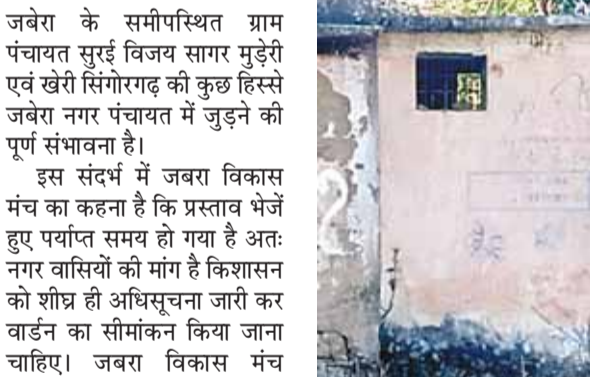 जबेरा के समीपस्थित ग्राम
पंचायत सुरई विजय सागर मुड़ेरी
एवं खेरी सिंगोरगढ़ की कुछ हिस्से
जबेरा नगर पंचायत में जुड़ने की
पूर्ण संभावना है।
इस संदर्भ में जबरा विकास
मंच का कहना है कि प्रस्ताव भेजें
हुए पर्याप्त समय हो गया है अतः
नगर वासियों की मांग है किशासन
को शीघ्र ही अधिसूचना जारी कर
वार्डन का सीमांकन किया जाना
चाहिए। जबरा विकास मंच